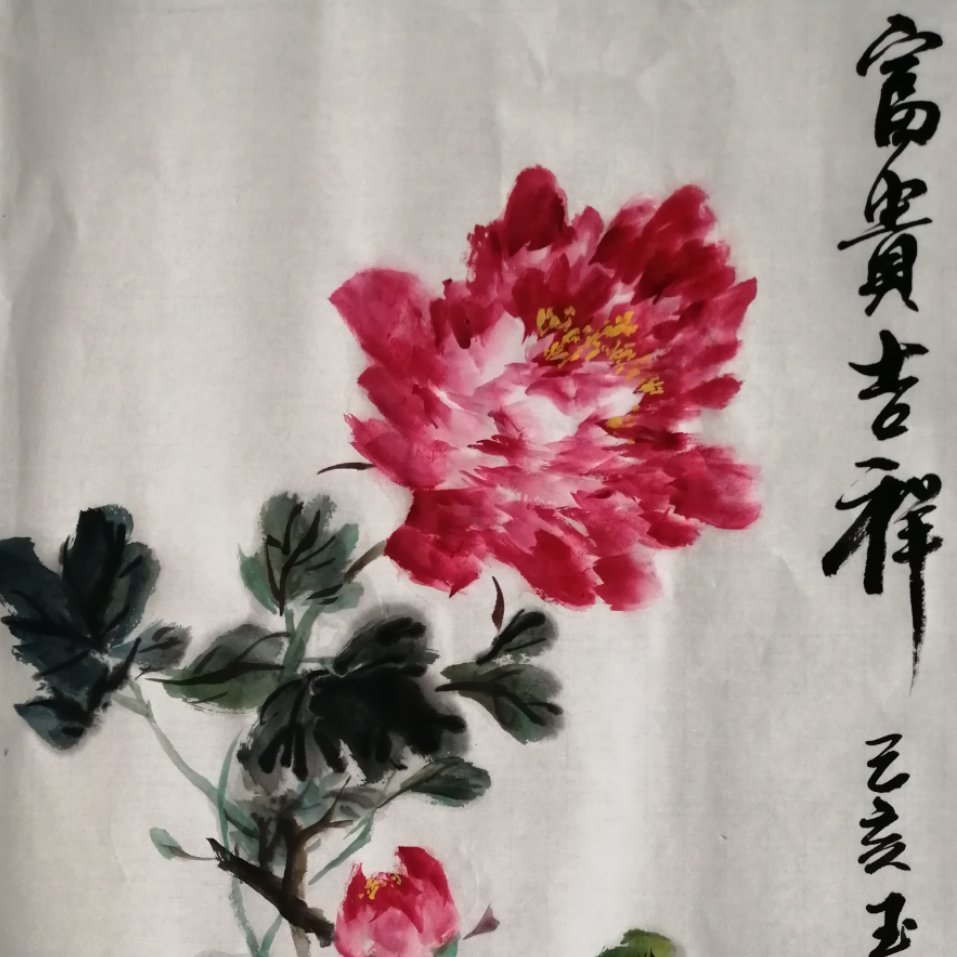 富貴吉祥
己亥玉